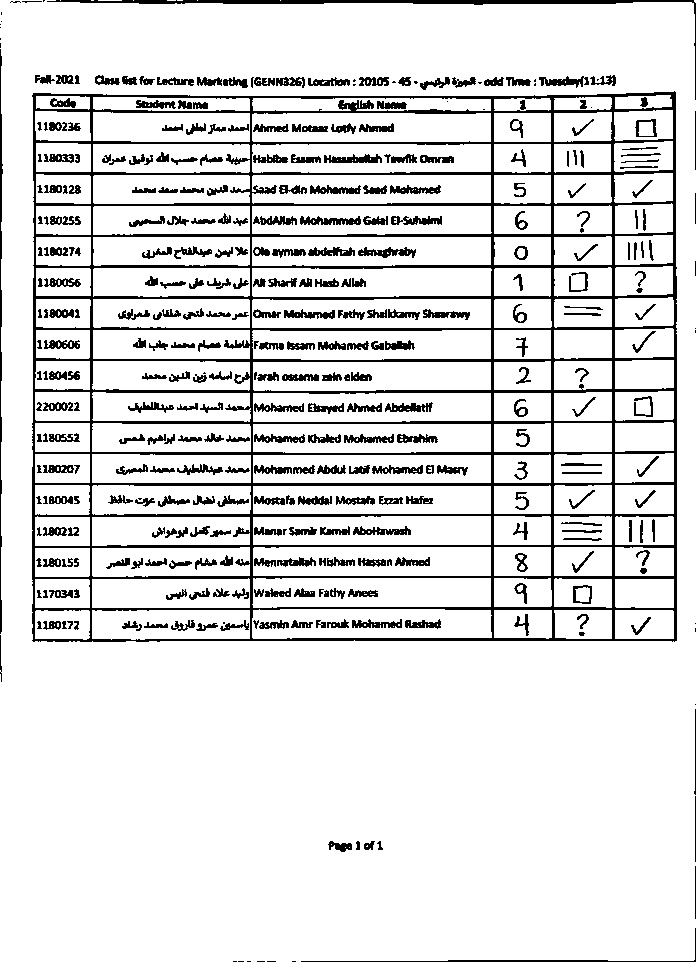 Fall-2021 Class list for Lecture Marketing (GENN326) Location : 20105 - 45 - الجيزة الرئيسي - odd Time : Tuesday(11:13)
Code Student Name English Name 1 2 3
1180236 احمد معتز لطفى احمد Ahmed Motaaz Lotfy Ahmed 9 ✓ □
1180333 حبيبة عصام حسب الله توفيق عمران Habiba Essam Hassaballah Tawfik Omran 4 |||
1180128 سعد الدين محمد سعد محمد Saad El-din Mohamed Saad Mohamed 5 ✓ ✓
1180255 عبد الله محمد جلال السحيمى AbdAllah Mohammed Galal El-Suhaimi 6 ? ||
1180274 علا ايمن عبدالفتاح المغربى Ola ayman abdelftah elmaghraby 0 ✓ ||||
1180056 على شريف على حسب الله Ali Sharif Ali Hasb Allah 1 □ ?
1180041 عمر محمد فتحي شلقامى شعراوى Omar Mohamed Fathy Shalkkamy Shaarawy 6 = ✓
1180606 فاطمة عصام محمد جاب الله Fatma Issam Mohamed Gaballah 7 ✓
1180456 فرح اسامه زين الدين محمد farah ossama zein elden 2 ?
2200022 محمد السيد احمد عبداللطيف Mohamed Elsayed Ahmed Abdellatif 6 ✓ □
1180552 محمد خالد محمد ابراهيم شمس Mohamed Khaled Mohamed Ebrahim 5
1180207 محمد عبداللطيف محمد المصرى Mohammed Abdul Latif Mohamed El Masry 3 = ✓
1180045 مصطفى نضال مصطفى عزت حافظ Mostafa Neddal Mostafa Ezzat Hafez 5 ✓ ✓
1180212 منار سمير كامل ابوهواش Manar Samir Kamel AboHawash 4 ≡ |||
1180155 منه الله هشام حسن احمد ابو النصر Mennatallah Hisham Hassan Ahmed 8 ✓ ?
1170343 وليد علاء فتحى انيس Waleed Alaa Fathy Anees 9 □
1180172 ياسمين عمرو فاروق محمد رشاد Yasmin Amr Farouk Mohamed Rashad 4 ? ✓
Page 1 of 1